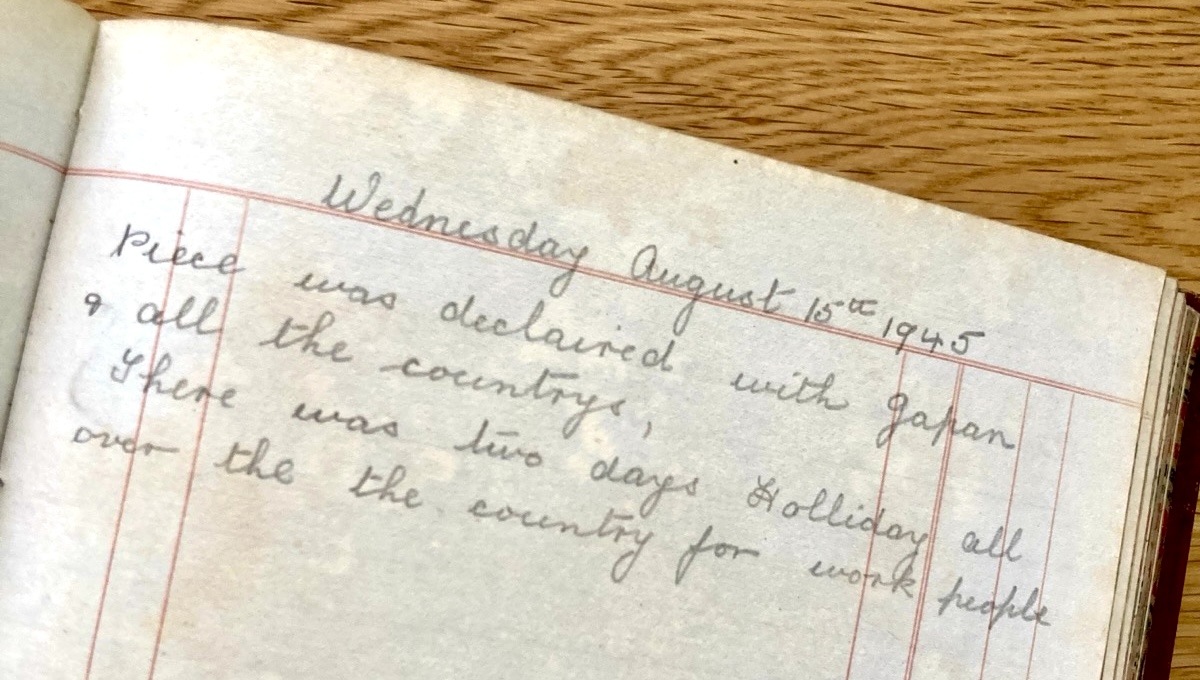 Wednesday August 15th 1945
Piece was declaired with Japan
& all the countrys,
There was two days Holliday all
over the the country for work people